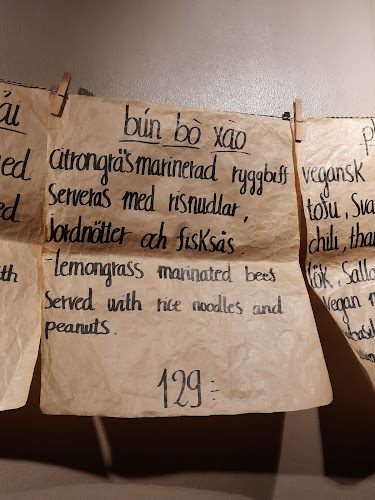 ải
bún bò xào
Citrongräsmarinerad ryggbiff
Serveras med risnudlar,
Jordnötter och fisksås.
-lemongrass marinated beef
Served with rice noodles and
peanuts.
129:-
vegansk
tofu, Sva
chili, than
lök, Salla
vegan